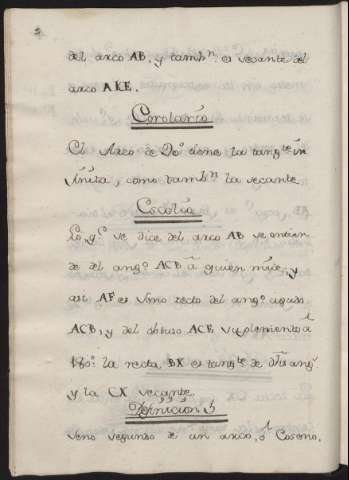 del arco AB, y tambn. es secante del
arco AKE.
Corolario
El Arco de 90. tiene la tangte in
finita, como tambn la secante
Escolio
Lo qe. se dice del arco AB se entien
de del angº. ACB á quien mide, y
asi AF es sino recto del angº. agudo
ACB, y del obtuso ACE suplemento á
180º. la recta BX es tangte. de dho angº
y la CX secante
Definicion 5
seno segundo de un arco, ó Coseno,